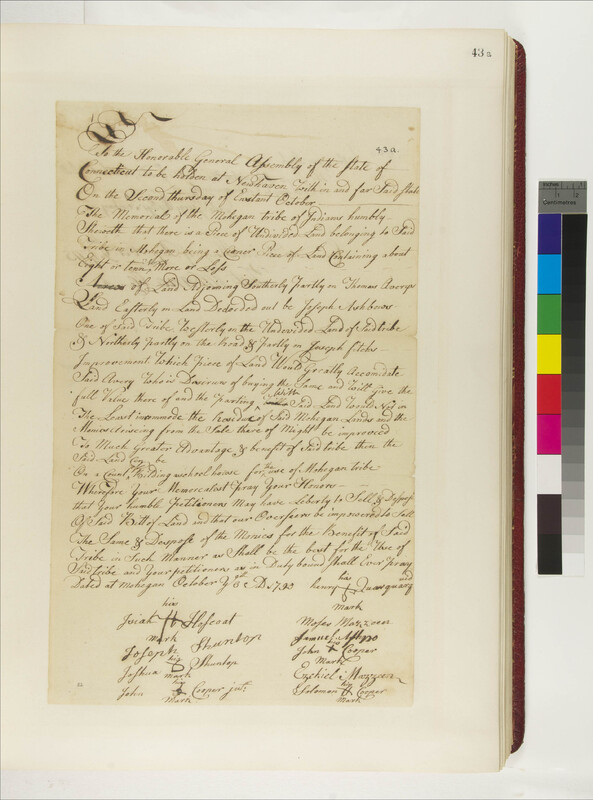 43a
43a
To the Honorable General Assembly of the State of
Connecticut to be holden at Newhaven with in and for Said State
On the Second thursday of Enstant October
The Memorial of the Mohegan tribe of Indians humbly
Sheweth that there is a Piece of Undivided Land belonging to Said
Tribe in Mohegan being a Corner Piece of Land Containing about
Eight or tenn More or Less
of Land Adjoining Southerly Partly on Thomas Averys
Land Easterly on Land Devided out be Joseph Ashbows
One of Said Tribe Westerly on the Undevided Land of Sd tribe
& Northerly partly on the Road & Partly on Joseph fitchs
Improvement Which Piece of Land Would Greatly Accomidate
Said Avery Who is Desierous of buying the Same and Will give the
full Value there of and the Parting With Said Land Would Not in
The Least incommode the Residue of Said Mohegan Lands and the
Monies Ariseing from the Sale there of Might be improved
To Much Greater Advantage & benefit of Said tribe then the
Said Land Can be
On a Count of Bilding a school house for the use of Mohegan tribe
Wherefore Your Memorealest Pray Your Honors
that Your humble Petitioners May have Liberty to Sell & Dispose
Of Said Bitt of Land and that our Overseers be impowered to Sell
The Same & Despose of the Monies for the Benefit of Said
Tribe in Such Manner as Shall be the best for the Use of
Said tribe and Your petitioners as in Duty bound Shall Ever pray
Dated at Mohegan October
his
henry Quaquaquid
mark
his
Josiah Hoscoat
mark
Moses Mazzeen
Joseph Shuntop
Samuel Ashpo
his
Joshua Shuntop
mark
his
John Cooper
mark
his
John Cooper junr
mark
Ezekiel Mazzeen
his
Solomon Cooper
mark
Inches
Centimetres